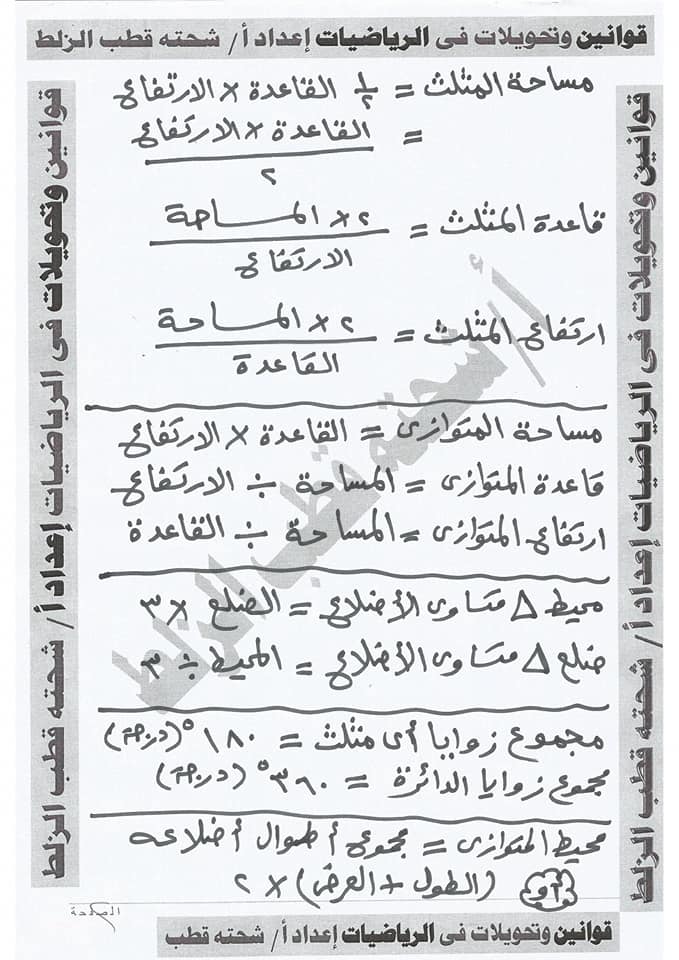 قوانين وتحويلات فى الرياضيات إعداد أ/ شحته قطب الزلط
قوانين وتحويلات فى الرياضيات إعداد أ/ شحته قطب الزلط
قوانين وتحويلات فى الرياضيات إعداد أ/ شحته قطب الزلط
مساحة المثلث = ١/٢ القاعدة × الارتفاع
= القاعدة × الارتفاع
٢
قاعدة المثلث = ٢ × المساحة
الارتفاع
ارتفاع المثلث = ٢ × المساحة
القاعدة
مساحة المتوازى = القاعدة × الارتفاع
قاعدة المتوازى = المساحة ÷ الارتفاع
ارتفاع المتوازى = المساحة ÷ القاعدة
محيط △ متساوى الأضلاع = الضلع × ٣
ضلع △ متساوى الأضلاع = المحيط ÷ ٣
مجموع زوايا أى مثلث = ١٨٠° (درجة)
مجموع زوايا الدائرة = ٣٦٠° (درجة)
محيط المتوازى = مجموع أطوال أضلاعه
أو (الطول + العرض) × ٢
الصفحة
قوانين وتحويلات فى الرياضيات إعداد أ/ شحته قطب
أ/ شحته قطب الزلط